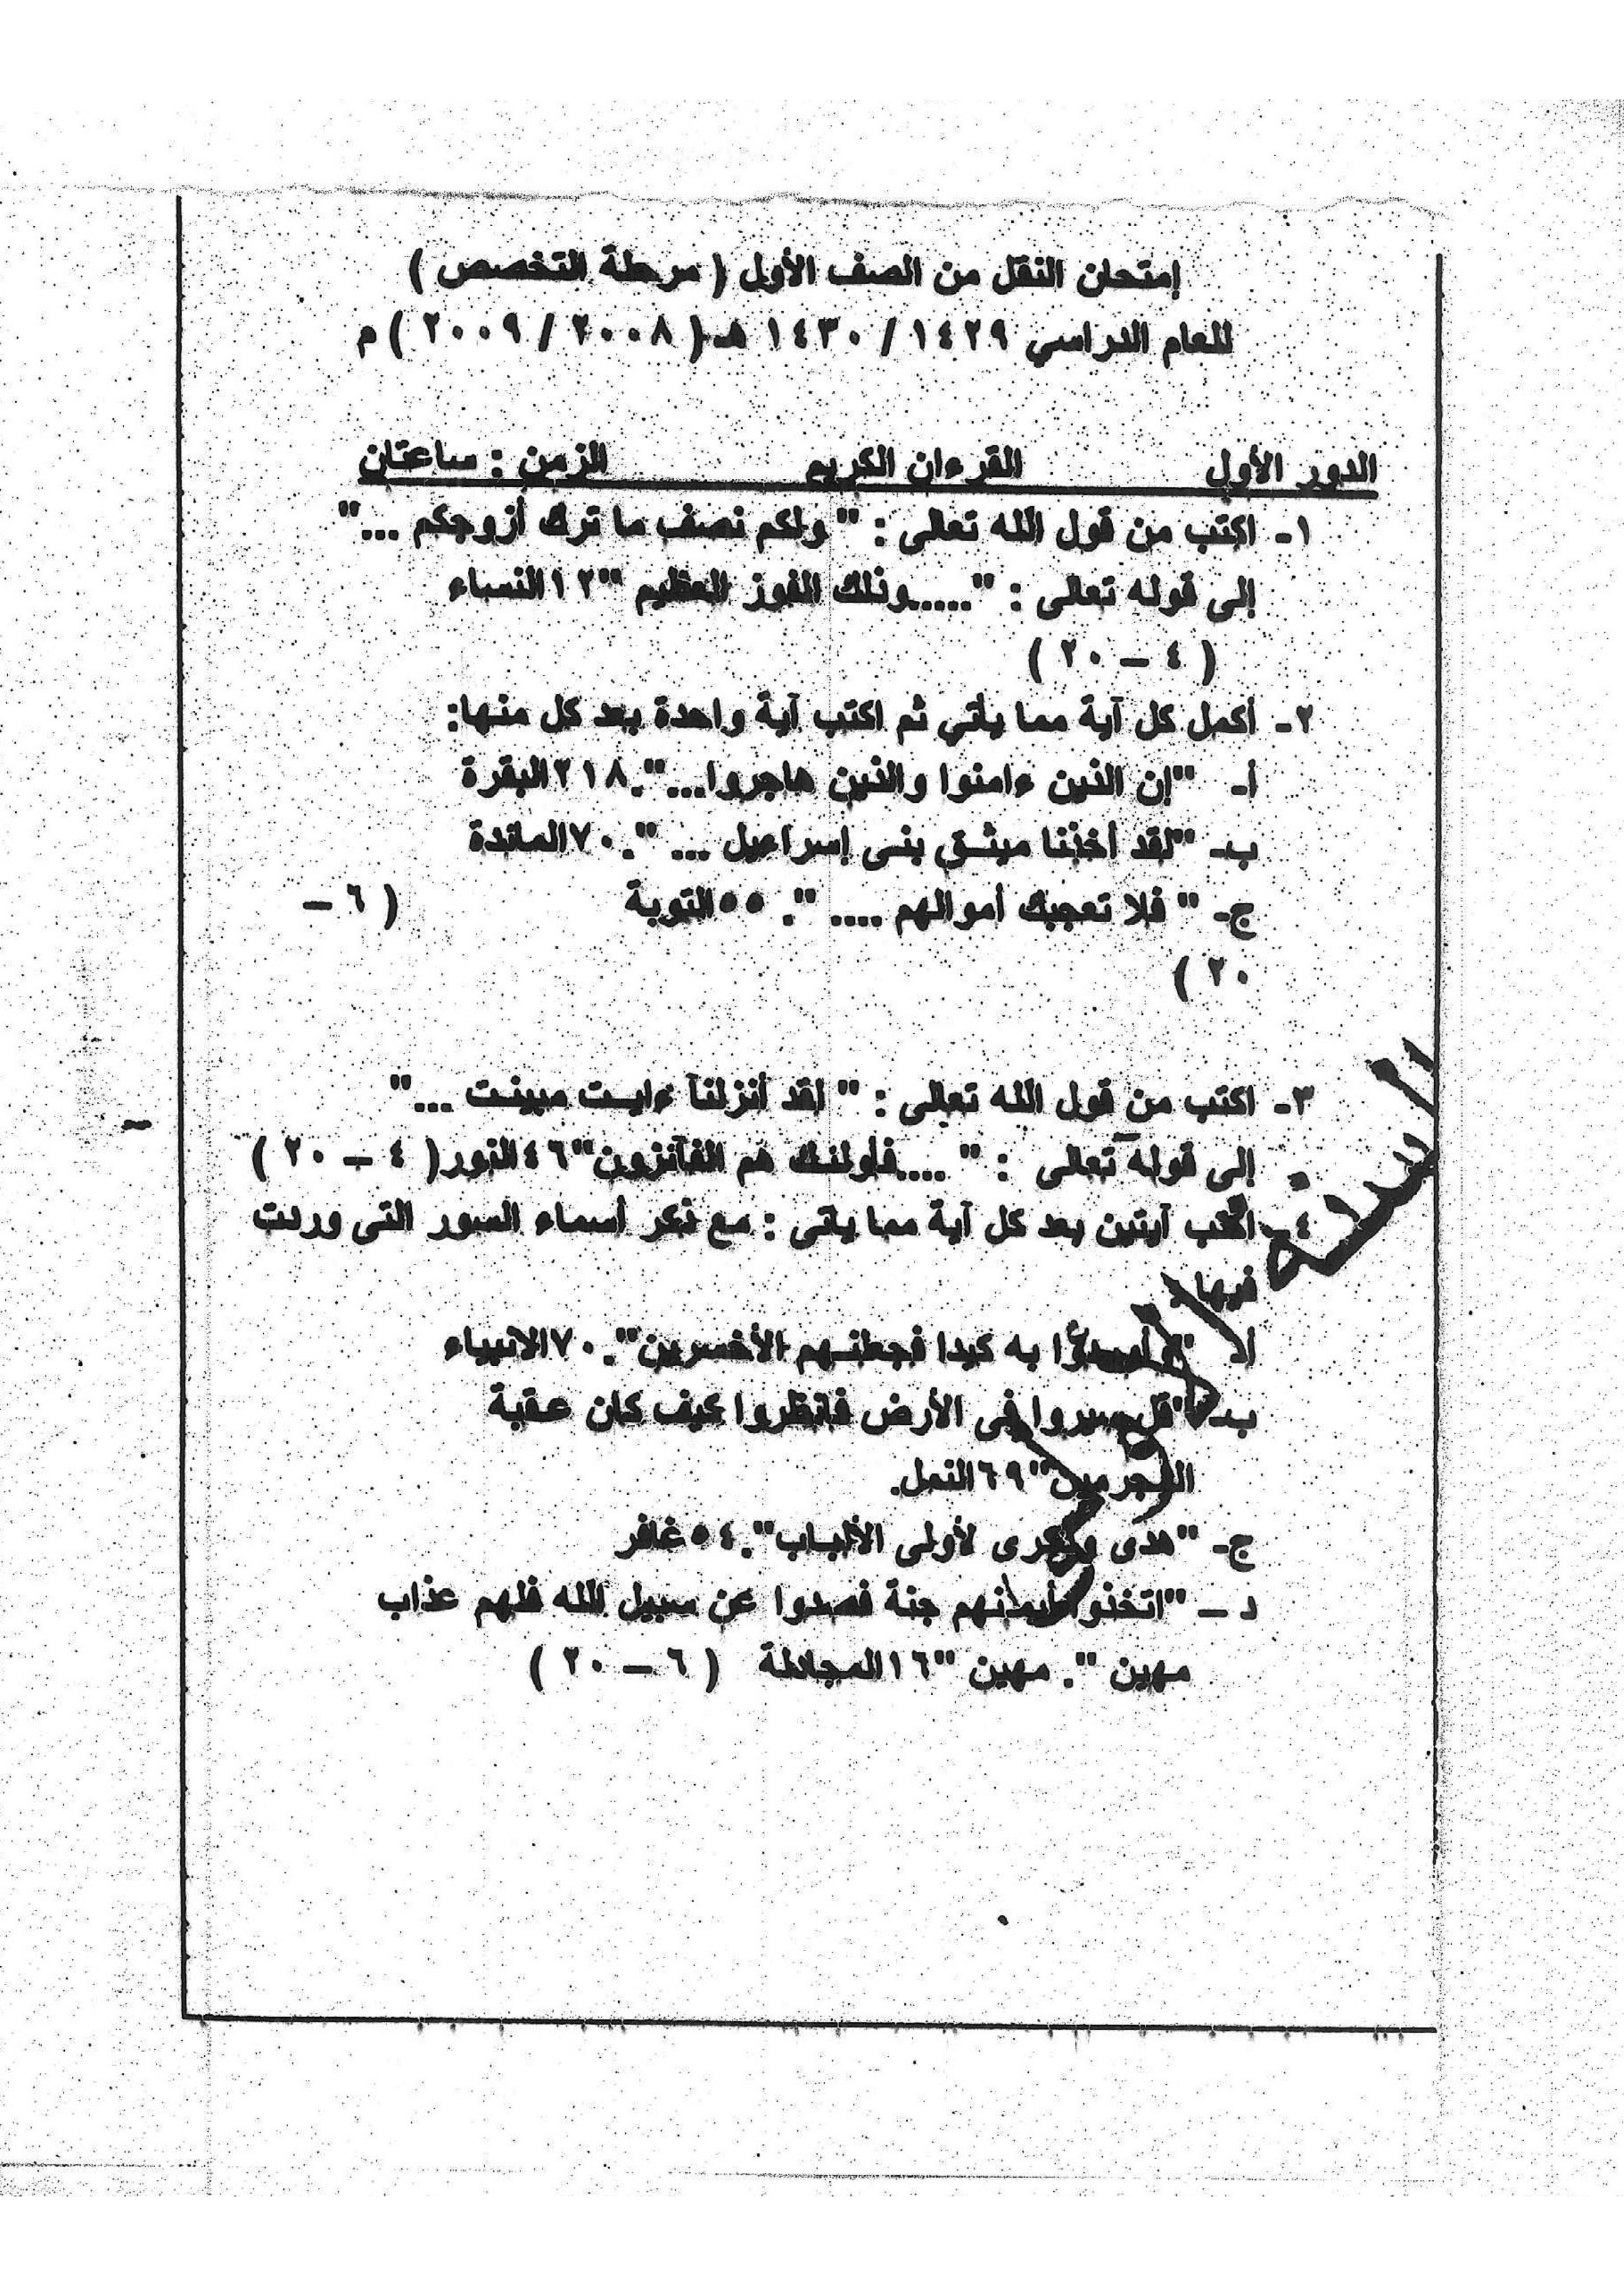 إمتحان النقل من الصف الأول ( مرحلة التخصص )
للعام الدراسي ١٤٢٩ / ١٤٣٠ هـ ( ٢٠٠٨ / ٢٠٠٩ ) م
الدور الأول القرءان الكريم الزمن : ساعتان
١- اكتب من قول الله تعالى : " ولكم نصف ما ترك أزوجكم ..."
إلى قوله تعالى : " .....وذلك الفوز العظيم "١٢النساء
( ٤ – ٢٠ )
٢- أكمل كل آية مما يأتي ثم اكتب آية واحدة بعد كل منها:
أ- "إن الذين ءامنوا والذين هاجروا...".٢١٨البقرة
ب- "لقد أخذنا ميثـق بنى إسراءيل ... ".٧٠المائدة
ج- " فلا تعجبك أموالهم .... ". ٥٥التوبة ( ٦ –
٢٠ )
٣- اكتب من قول الله تعالى : " لقد أنزلنآ ءايـت مبينـت ..."
إلى قوله تعالى : " ....فأولئـك هم الفآئزون"٤٦النور( ٤ – ٢٠ )
٤- اكتب آيتين بعد كل آية مما يأتى : مع ذكر أسماء السور التى وردت
فيها :
أ- " وأرادوا به كيدا فجعلنـهم الأخسرين".٧٠الانبياء
ب- "قل سيروا فى الأرض فانظروا كيف كان عـقبة
المجرمين"٦٩النمل.
ج- "هدى وذكرى لأولى الألبـاب".٥٤غافر
د – "اتخذوا أيمانهم جنة فصدوا عن سبيل الله فلهم عذاب
مهين ". مهين "١٦المجادلة ( ٦ – ٢٠ )